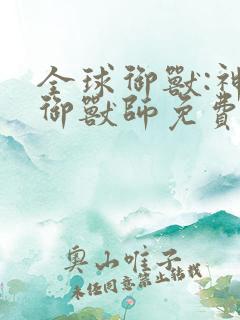 全球御獸:神
御獸師免費
奧山唯子
未經同意禁止轉載